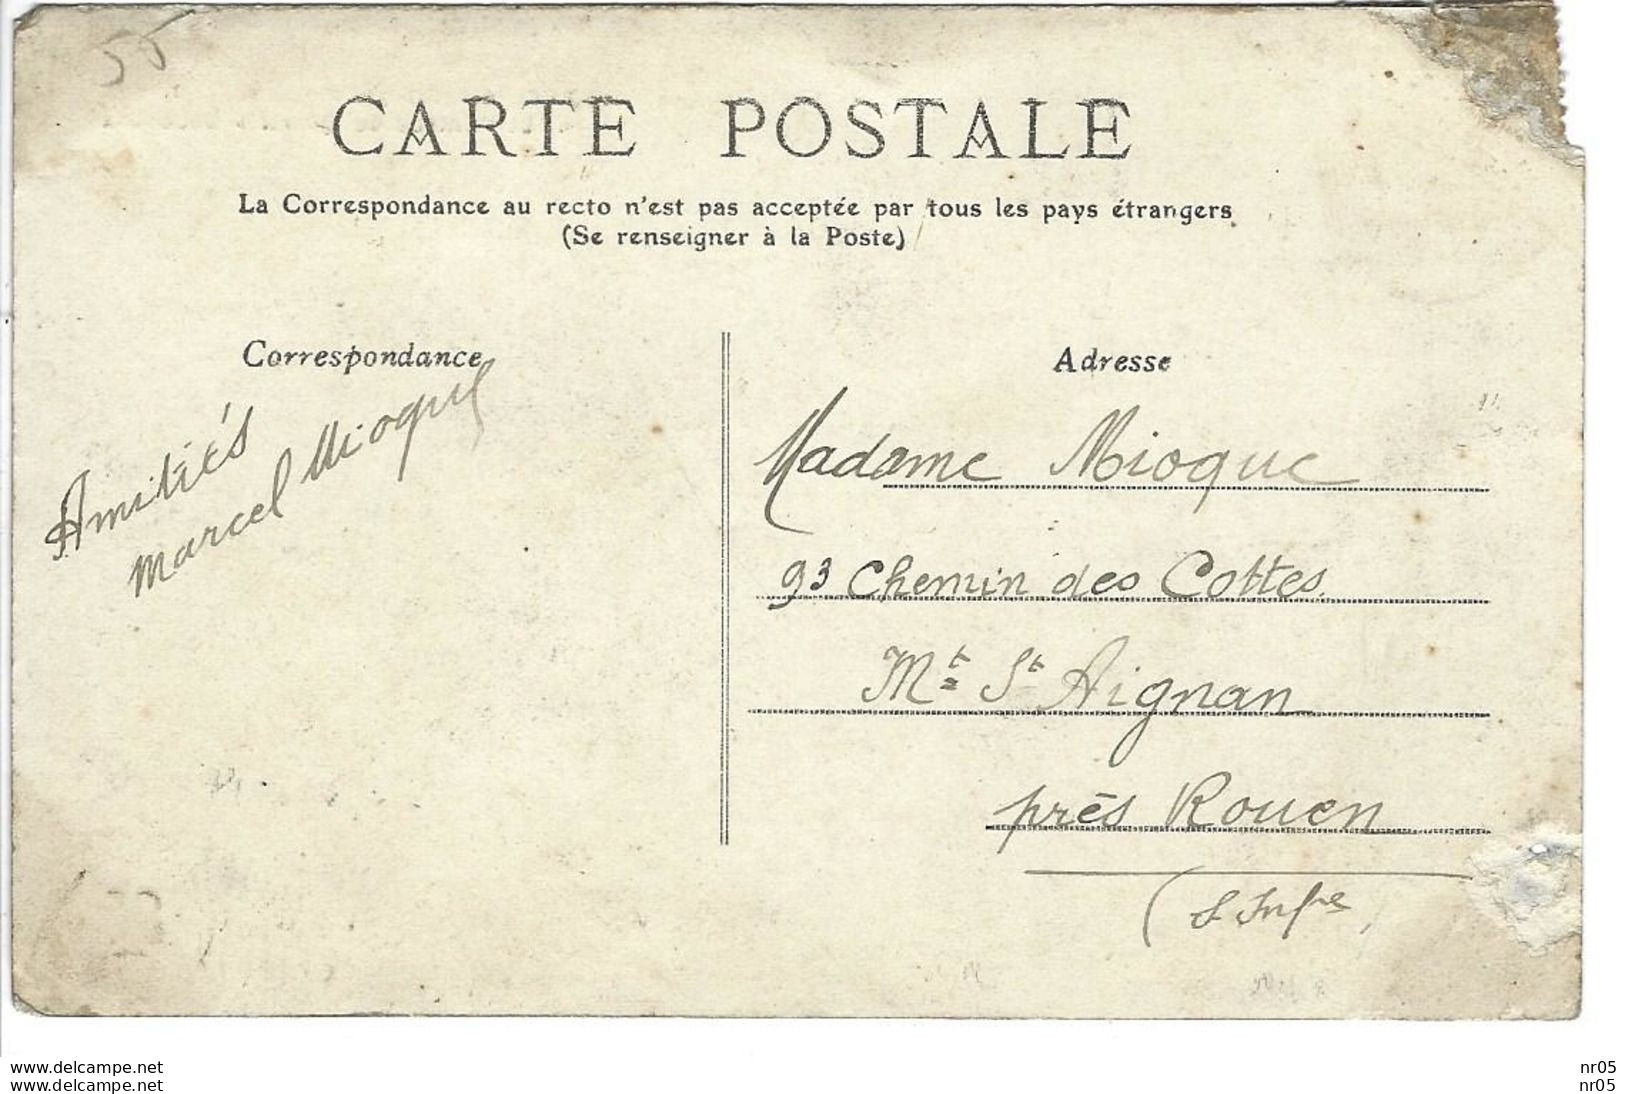 55
CARTE POSTALE
La Correspondance au recto n'est pas acceptée par tous les pays étrangers
(Se renseigner à la Poste)
Correspondance
Amitiés
Marcel Mioque
Adresse
Madame Mioque
93 Chemin des Cottes.
Mt St Aignan
près Rouen
(S Infre)
www.delcampe.net nr05
www.delcampe.net nr05